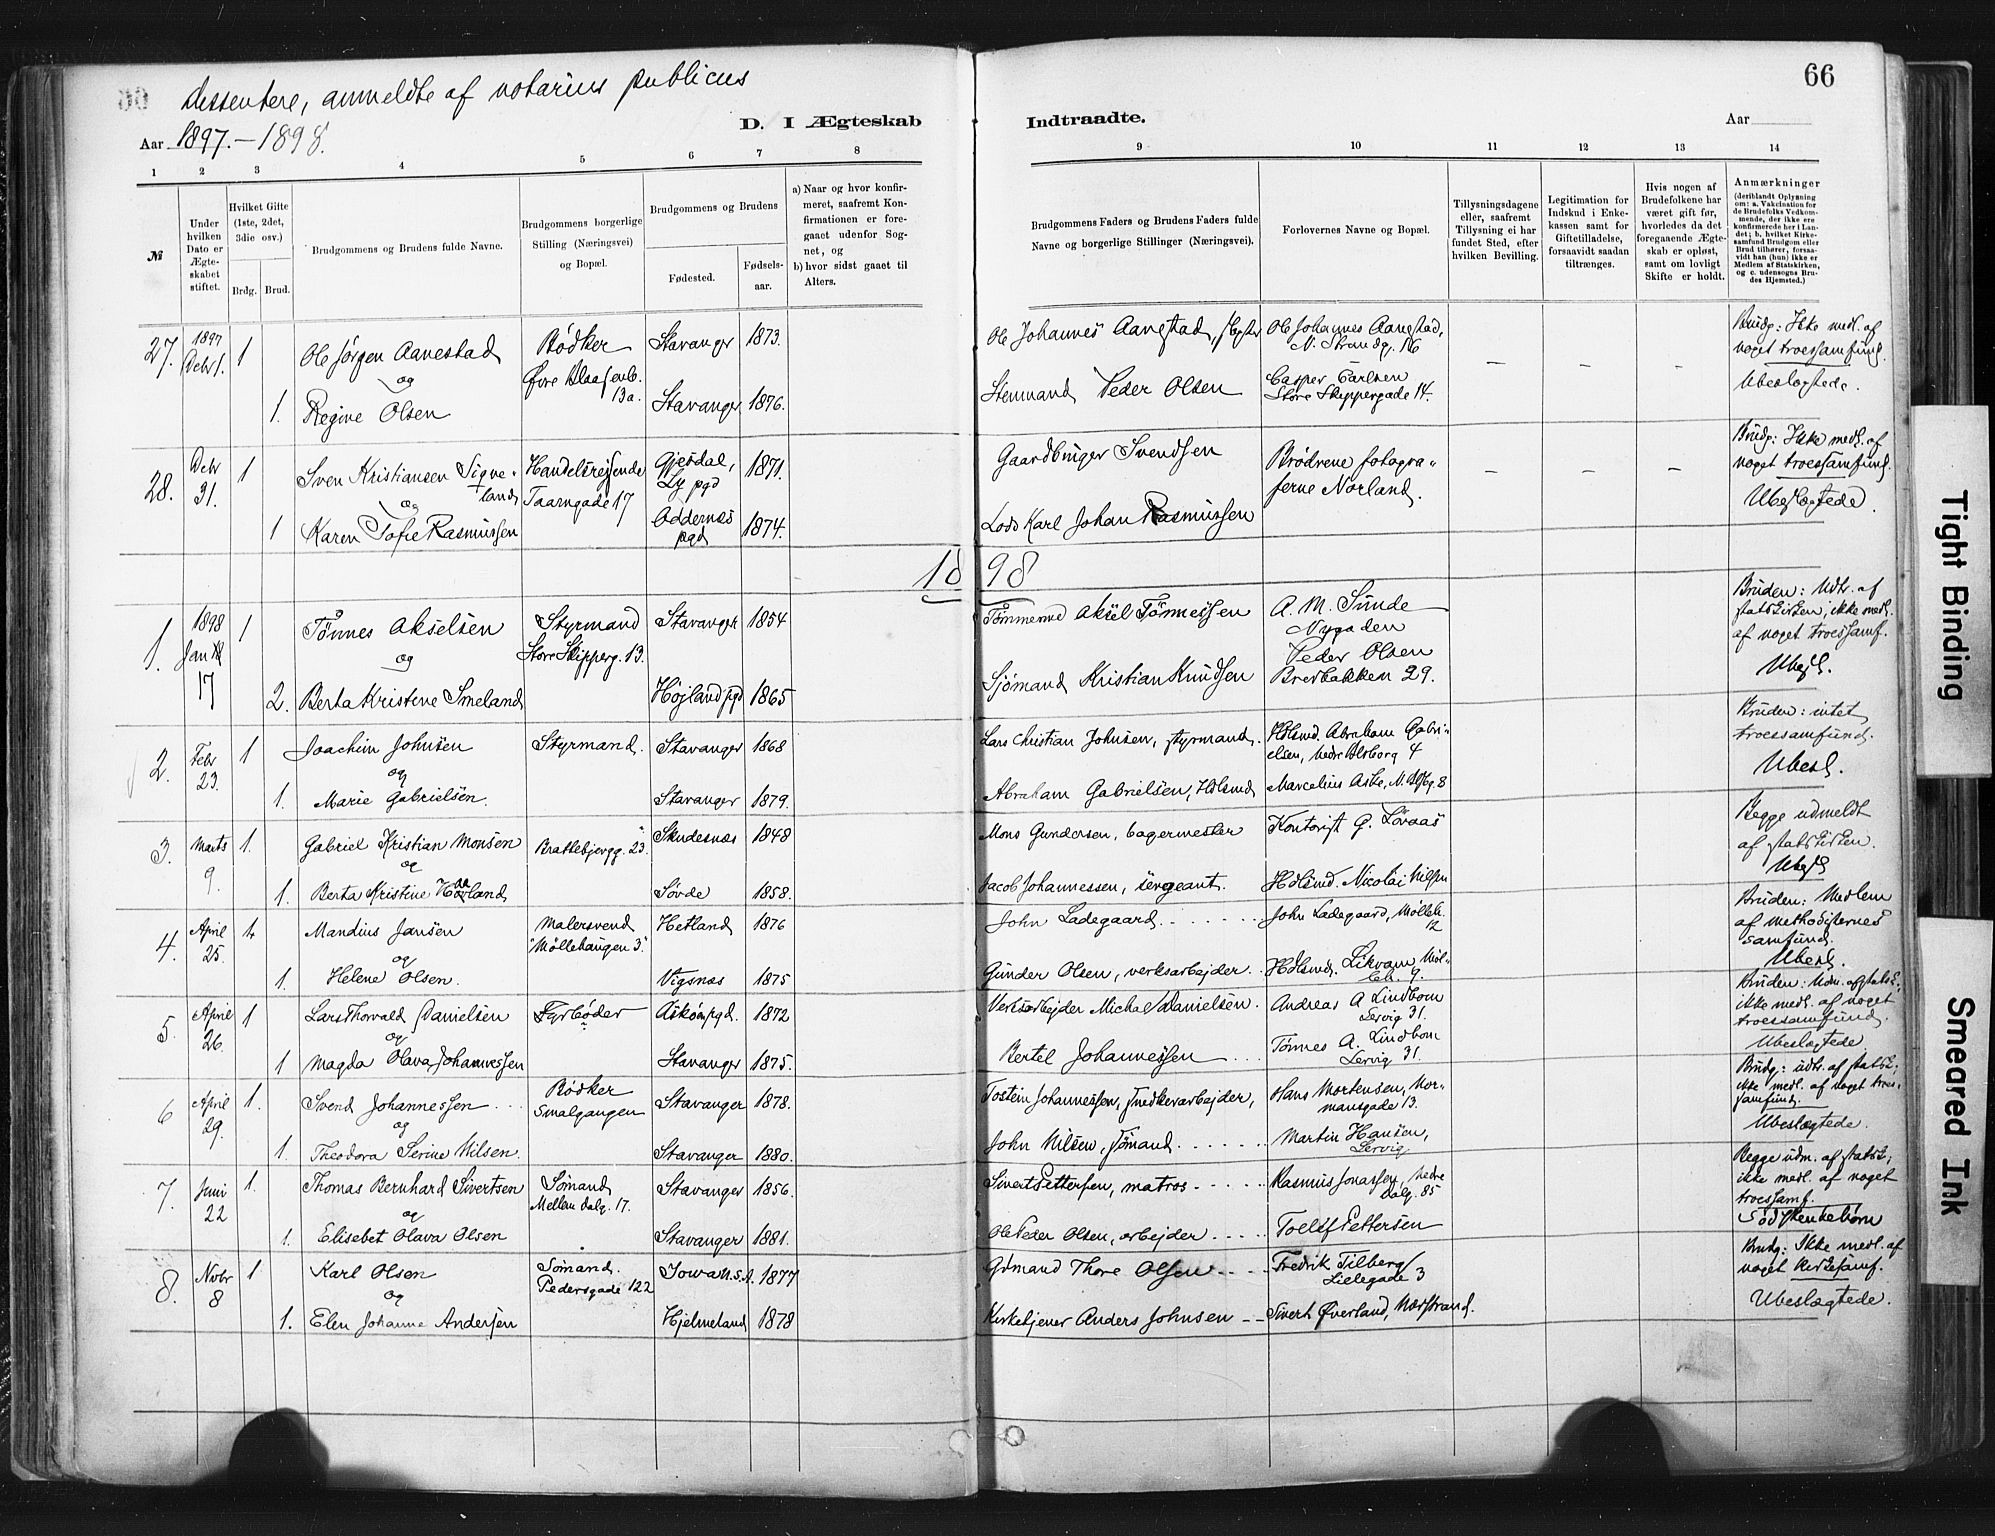 66
dissentere, anmeldte af notarius publicus
Aar 1897.–1898.
D. I Ægteskab
Indtraadte.
Aar
1 2 3 4 5 6 7 8 9 10 11 12 13 14
№
Under hvilken Dato er Ægteskabet stiftet.
Hvilket Gifte (1ste, 2det, 3die osv.)
Brdg. Brud.
Brudgommens og Brudens fulde Navne.
Brudgommens borgerlige Stilling (Næringsvei) og Bopæl.
Brudgommens og Brudens
Fødested.
Fødselsaar.
a) Naar og hvor konfirmeret, saafremt Konfirmationen er foregaaet udenfor Sognet, og
b) hvor sidst gaaet til Alters.
Brudgommens Faders og Brudens Faders fulde Navne og borgerlige Stillinger (Næringsvei).
Forlovernes Navne og Bopæl.
Tillysningsdagene eller, saafremt Tillysning ei har fundet Sted, efter hvilken Bevilling.
Legitimation for Indskud i Enkekassen samt for Giftetilladelse, forsaavidt saadan tiltrænges.
Hvis nogen af Brudefolkene har været gift før, hvorledes da det foregaaende Ægteskab er opløst, samt om lovligt Skifte er holdt.
Anmærkninger (deriblandt Oplysning om: a. Vakcination for de Brudefolks Vedkommende, der ikke ere konfirmerede her i Landet; b. hvilket Kirkesamfund Brudgom eller Brud tilhører, forsaavidt han (hun) ikke er Medlem af Statskirken, og c. udensogns Brudes Hjemsted.)
27. 1897 Debr 1. 1 Ole Jørgen Aanestad Bødker Stavanger 1873. Ole Johannes Aanestad, Ole Johannes Aanestad, N. Strandg. 116 – – – Brudg: Ikke medl. af noget troessamfund.
og Øvre 13a.
1. Regine Olsen Stavanger 1876. Stenmand Peder Olsen Casper Carlsen Store Skippergade 14. Ubeslægtede.
28. Debr 31. 1 Sven Kristiansen Sigveland Handelsreisende Taarngade 17 Gjesdal, Ly pgd 1871. Gaardbruger Svendsen Brødrene fotograferne Norland. – – – Brudg: Ikke medl. af noget troessamfund.
og
1 Karen Tofie Rasmussen Oddernes pgd 1874. Lods Karl Johan Rasmussen Ubeslægtede.
1898
1. 1898 Jan 17 1 Tønnes Akselsen Styrmand Store Skipperg. 13. Stavanger 1854 Tømmermd Aksel Tønnessen A. M. Sunde Nygaden Bruden: Udtr. af statskirken, ikke medl. af noget troessamf.
og
2. Berta Kristine Smeland Højland pgd 1865 Sjømand Kristian Knudsen Peder Olsen Bredbakken 29. Ubesl.
2. Febr 23. 1 Joachim Johnsen Styrmand. Stavanger 1868 Lars Christian Johnsen, styrmand. Hdlsmd. Abraham Gabrielsen, nedre 4 Bruden: intet troessamfund.
og
1. Marie Gabrielsen. Stavanger 1879. Abraham Gabrielsen, Hdlsmd Marcelius Aske, 8 Ubesl.
3. Marts 9. 1. Gabriel Kristian Monsen Brattebjergg. 23. Skudesnæs 1848 Mons Gundersen, bagermester Kontorist G. Løvaas Begge udmeldt af statskirken.
og
1. Berta Kristine Søvde 1858. Jacob Johannessen, sergeant. Hdlsmd. Nicolai Nilsen Ubesl
4. April 25. 1. Mandius Jansen Malersvend "Møllehaugen 3" Hetland 1876 John Ladegaard. John Ladegaard, Mølleh. 12 Bruden: Medlem af Methodisternes samfund.
og
1. Helene Olsen. Vigsnæs 1875 Gunder Olsen, verksarbejder. Hdlsmd. Likvam Mølleh. 9. Ubesl.
5. April 26. 1 Lars Thorvald Danielsen Fyrbøder Askøen pgd. 1872 Verksarbejder Michal Danielsen. Andreas A Lindbom Lervig 31. Bruden: Udm. af statsk., ikke medl. af noget troessamfund.
og
1 Magda Olava Johannessen Stavanger 1875. Bertel Johannessen Tønnes A. Lindbom Lervig 31. Ubeslægtede.
6 April 29. 1. Svend Johannessen Bødker Smalgangen Stavanger 1878. Tostein Johannessen, snedkerarbejder, Hans Mortensen, Normansgade 13. Brudg: udtr. af statsk., ikke medl. af noget troessamfund.
og
1. Theodora Serine Nilsen. Stavanger 1880. John Nilsen, sømand. Martin Hansen, Lervig Ubeslægtede.
7. Juni 22 1. Thomas Bernhard Sivertsen Sømand Mellem dalg. 17. Stavanger 1856. Sivert Pettersen, matros Rasmus Jonassen, nedre Dalg. 85 Begge udm. af statsk., ikke medl. af noget troessamf.
og
1. Elisebet Olava Olsen Stavanger 1881. Ole Peder Olsen, arbejder Toelef Pettersen Sødskenebørn
8. Novbr 8 1 Karl Olsen Sømand. Pedersgade 122 Iowa N.S.A. 1877 Sømand Thore Olsen Fredrik Tilberg Lielegade 3 Brudg: Ikke medl. af noget kirkesamf.
og
1. Elen Johanne Andersen Hjelmeland 1878 Kirketjener Anders Johnsen Sivert Øverland, Narstrand. Ubeslægtede.
Tight Binding
Smeared Ink